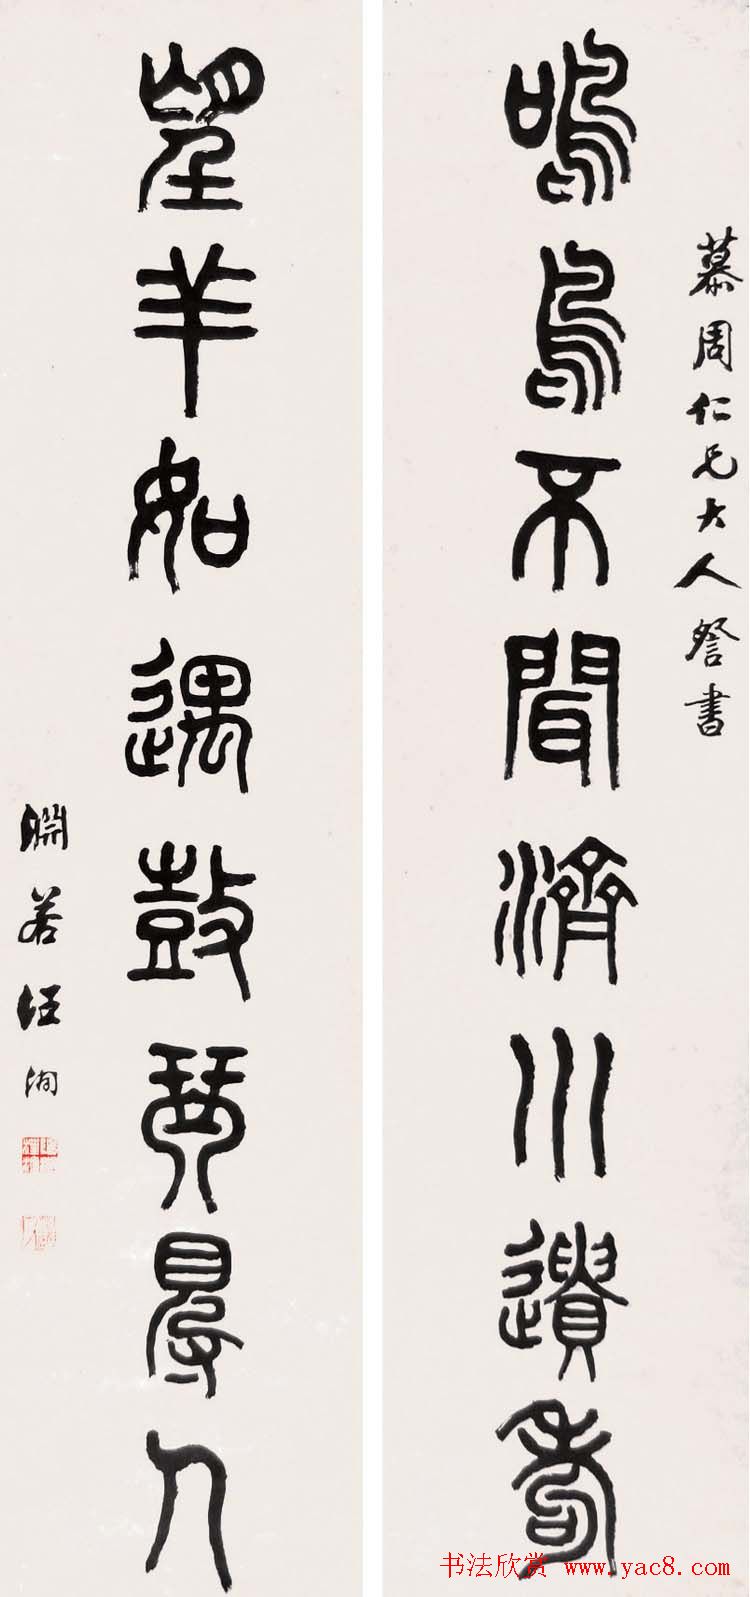 慕周仁兄大人詧書
鳴鳥不聞濟川遺耇
望羊如遇鼓琴㝵人
淵若汪洵
书法欣赏 www.yac8.com